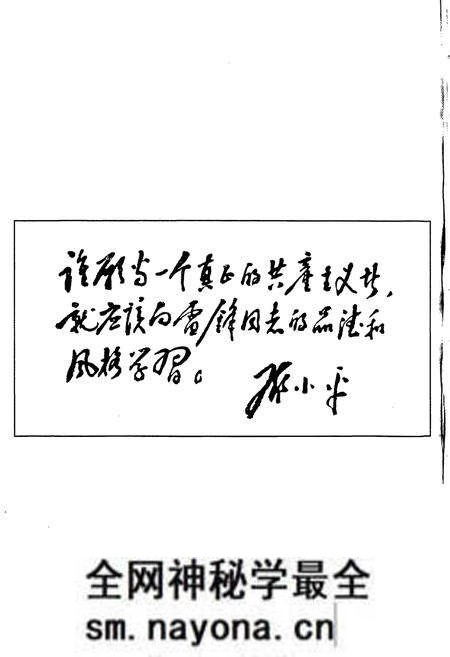 谁愿当一个真正的共产主义者，
就应该向雷锋同志的品德和
风格学习。
邓小平
全网神秘学最全
sm.nayona.cn